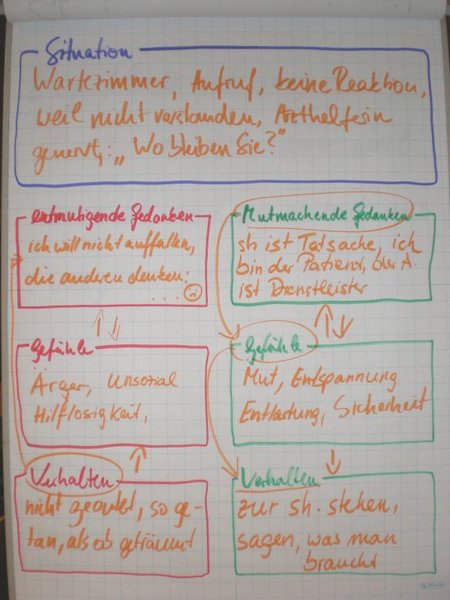 Situation
Wartezimmer, Aufruf, keine Reaktion,
weil nicht verstanden, Arzthelferin
genervt: „Wo bleiben Sie?"
entmutigende Gedanken
ich will nicht auffallen,
die anderen denken:
....
Gefühle
Ärger, unsozial
Hilflosigkeit,
Verhalten
nicht geoutet, so ge-
tan, als ob geträumt
Mutmachende Gedanken
sh ist Tatsache, ich
bin der Patient, der A.
ist Dienstleister
Gefühle
Mut, Entspannung
Entlastung, Sicherheit
Verhalten
zur sh. stehen,
sagen, was man
braucht